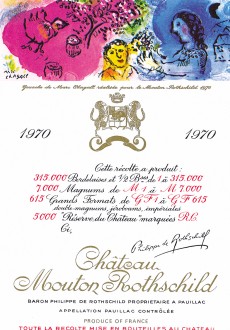 Marc
Chagall
Gouache de Marc Chagall, réalisée pour le Mouton Rothschild 1970
1970 1970
Cette récolte a produit :
315.000 Bordelaises et 1/2 Blles de 1 à 315 000
7 000 Magnums de M 1 à M 7 000
615 Grands Formats de G F 1 à G F 615
double-magnums, jéroboams, impériales
5 000 "Réserve du Château" marquées R.C.
Ci,
Philippe de Rothschild
Château
Mouton Rothschild
BARON PHILIPPE DE ROTHSCHILD PROPRIETAIRE A PAUILLAC
APPELLATION PAUILLAC CONTRÔLÉE
PRODUCE OF FRANCE
TOUTE LA RECOLTE MISE EN BOUTEILLES AU CHATEAU